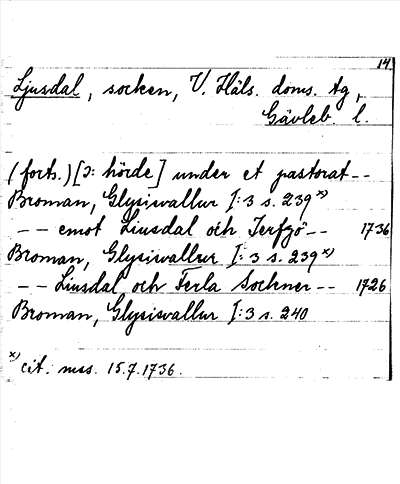 14.
Ljusdal, socken, V. Häls. doms. tg,
Gävleb. l.
(forts.) [ɔ: hörde] under et pastorat--
Broman, Glysisvallur I:3 s. 239 x)
-- emot Liusdal och Jerfsö-- 1736
Broman, Glysisvallur I:3 s. 239 x)
-- Liusdal och Ferla Sockner-- 1726
Broman, Glysisvallur I:3 s. 240
x) cit. mss. 15.7.1736.